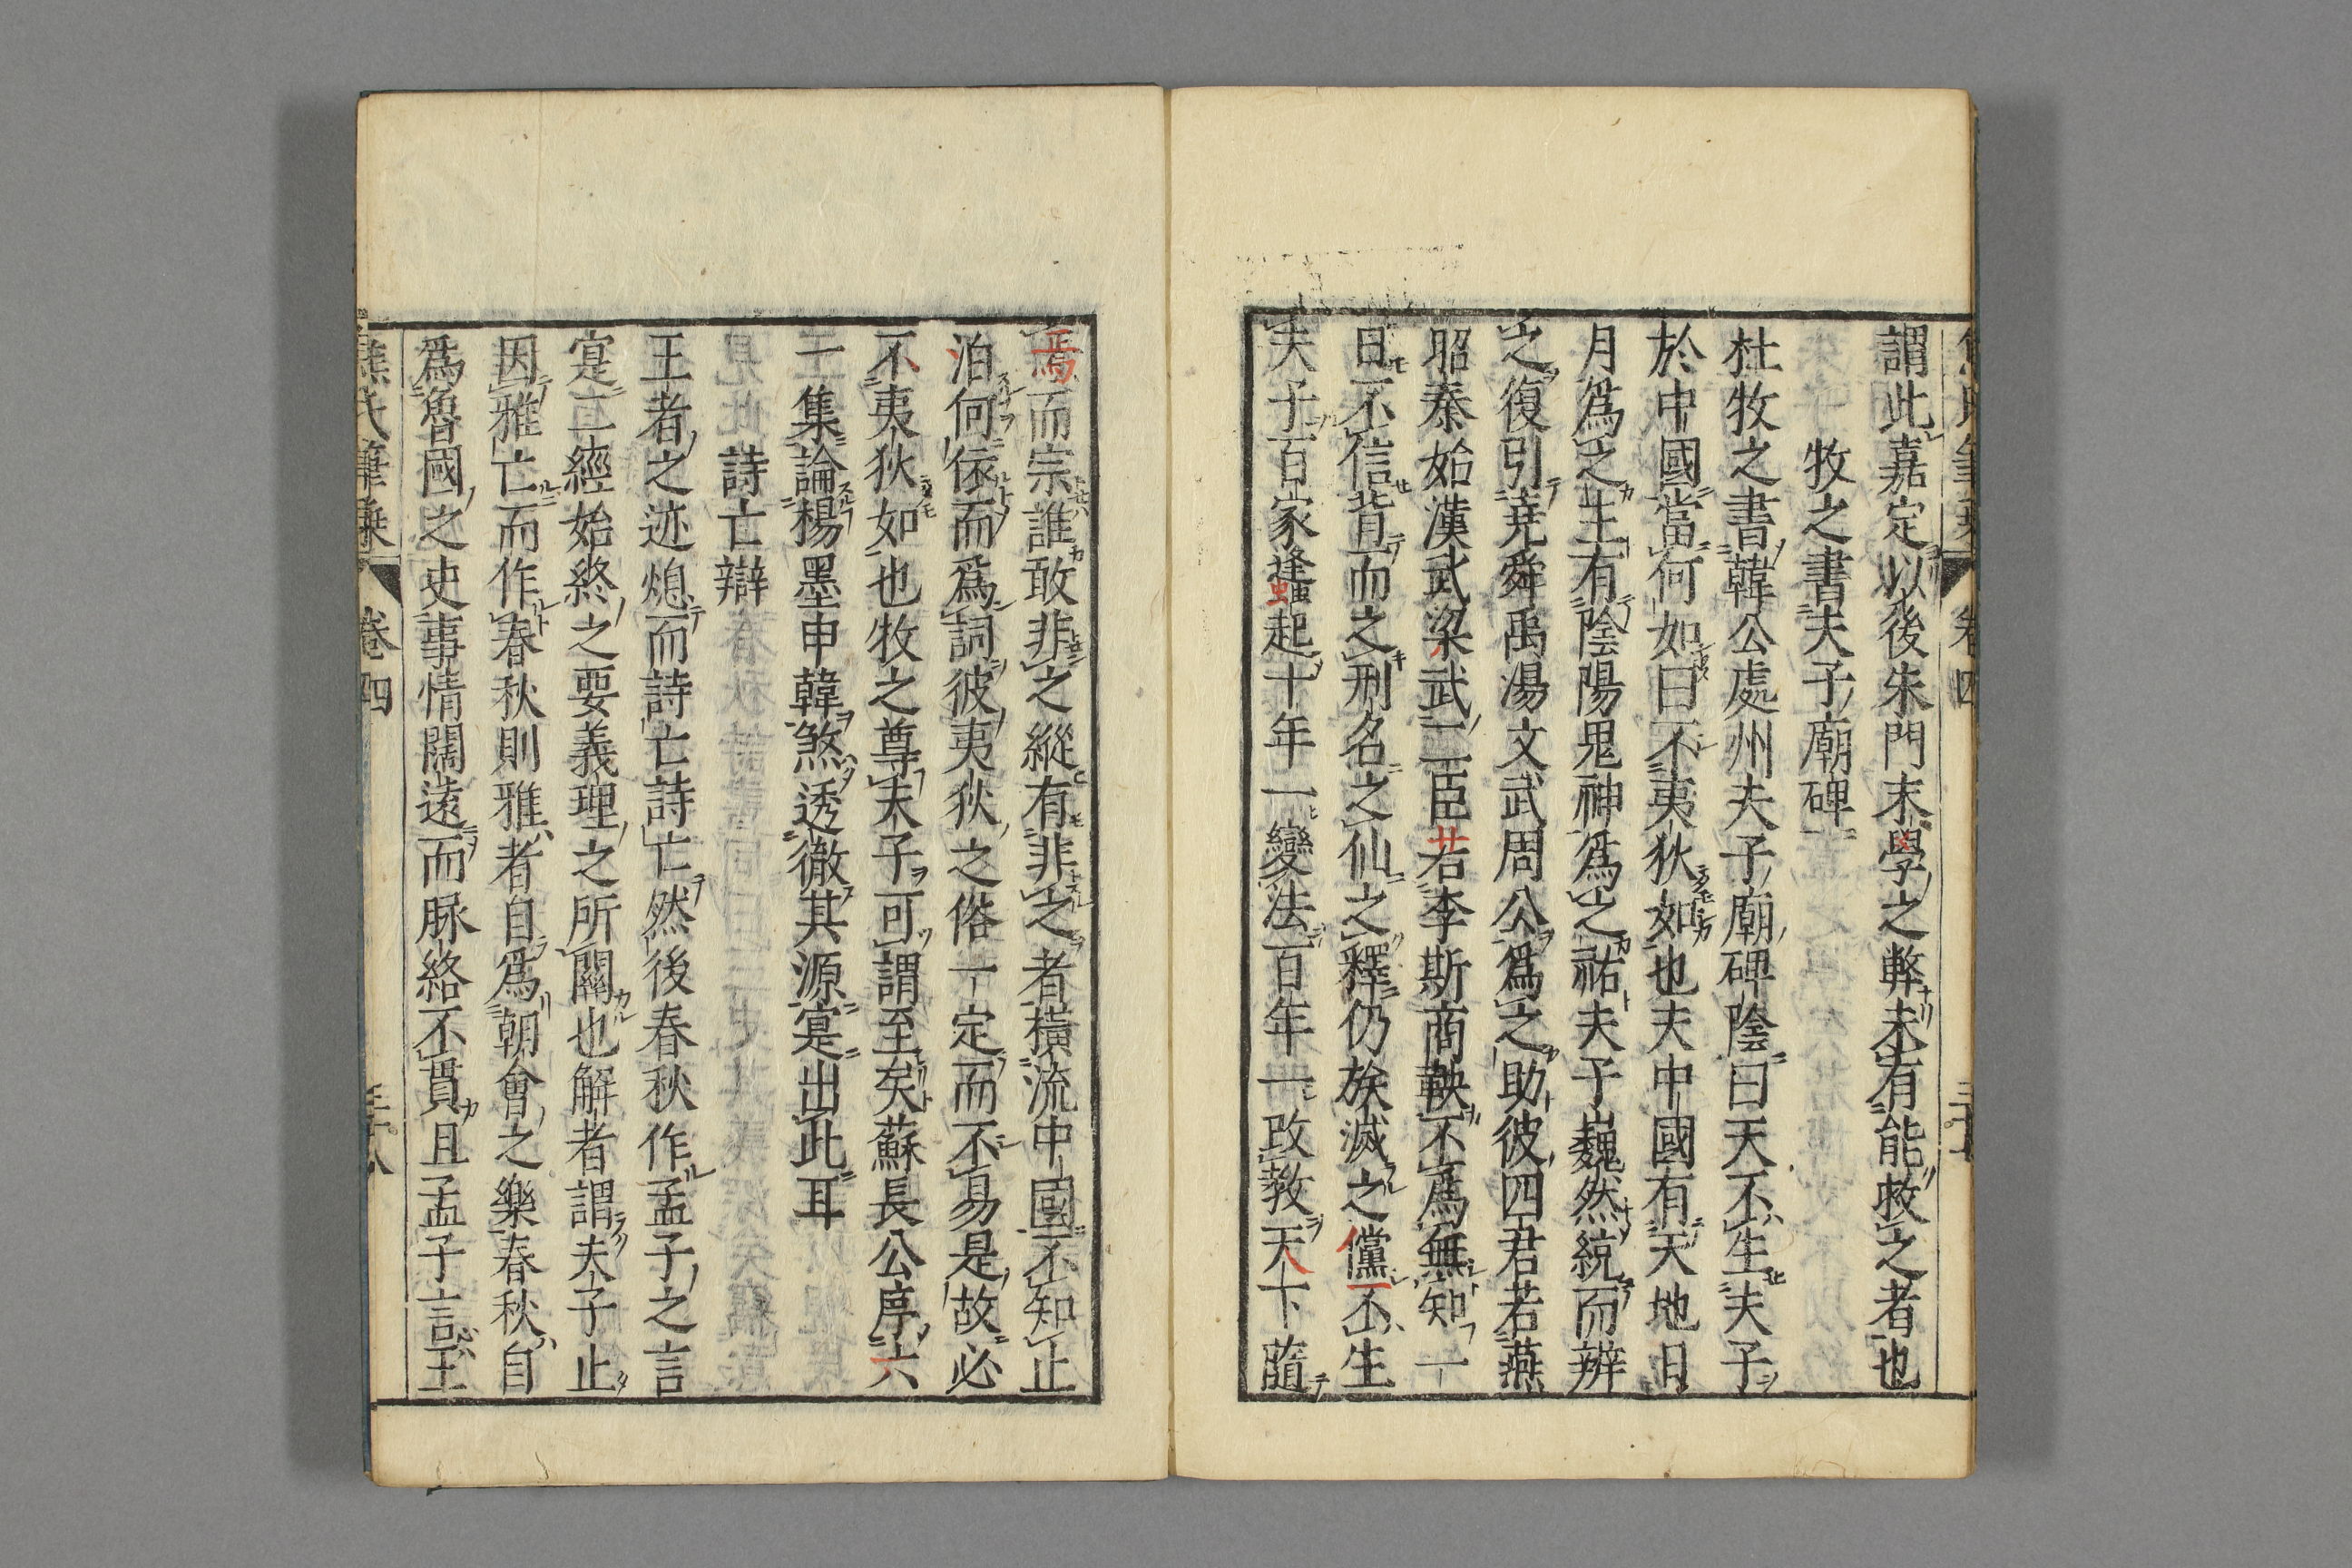 謂此嘉定以後朱門末學之弊未有能救之者也
牧之書夫子廟碑
杜牧之書韓公處州夫子廟碑陰曰天不生夫子
於中國當何如曰不夷狄如也夫中國有天地日
月爲之主有陰陽鬼神爲之祐夫子巍然統而辨
之復引堯舜禹湯文武周公爲之助彼四君若燕
昭秦始漢武梁武二臣若李斯商鞅不爲無知一
日不信背而之刑名之仙之釋仍族滅之儻不生
夫子百家䗬起十年一變法百年一改教天下蕯
焉而宗誰敢非之縱有非之者橫流中國不知止
泊何依而爲詞彼夷狄之俗一定而不易是故必
不夷狄如也牧之尊夫子可謂至矣蘇長公序六
一集論楊墨申韓煞透徹其源寔出此耳
詩亡辯
王者之迹熄而詩亡詩亡然後春秋作孟子之言
寔二經始終之要義理之所關也解者謂夫子止
因雅亡而作春秋則雅者自爲朝會之樂春秋自
爲魯國之史事情闊遠而脉絡不貫且孟子言王
焦氏筆乘 卷四 三十八